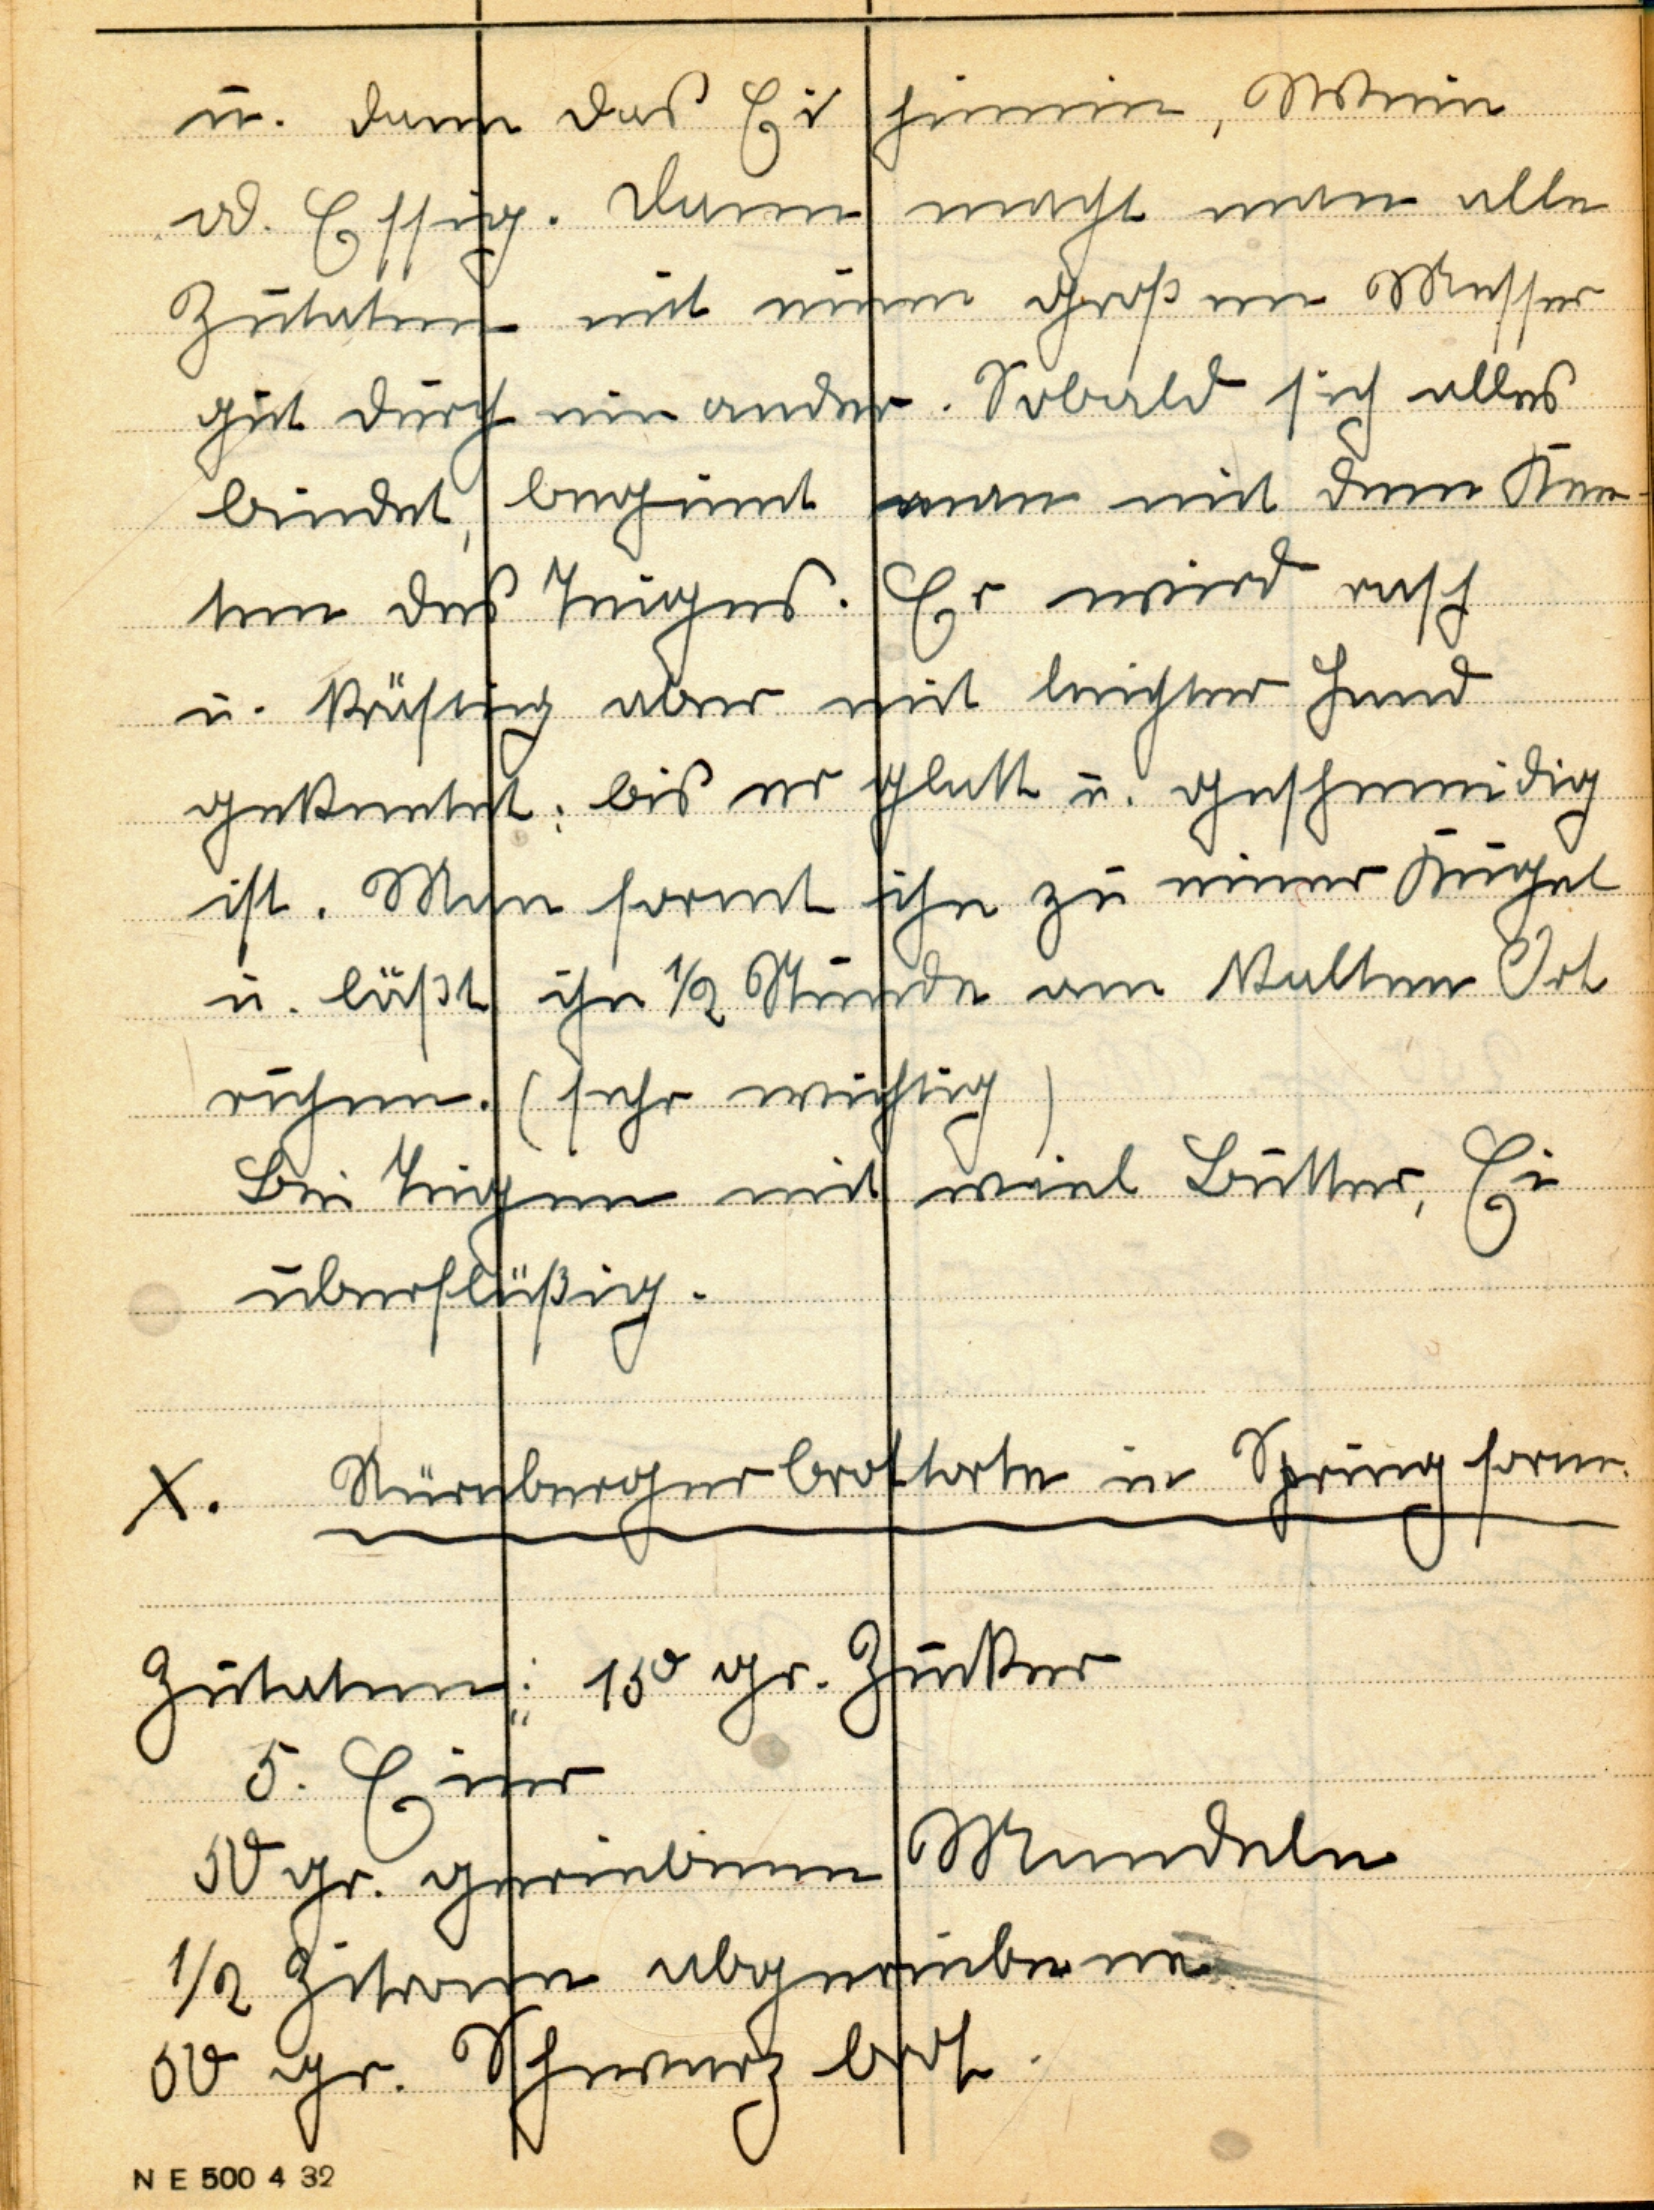 u. dann das Ei hinein, Wein
od. Essig. Dann macht man alle
Zutaten mit einem großen Messer
gut durch einander. Sobald sich alles
bindet, beginnt man mit dem Kne-
ten des Teiges. Er wird rasch
u. kräftig aber mit leichter Hand
geknetet; bis er glatt u. geschmeidig
ist. Man formt ihn zu einer Kugel
u. läßt ihn 1/2 Stunde am kalten Ort
ruhen. (sehr wichtig)
Bei Teigen mit viel Butter, Ei
überflüßig.
X. Nürnberger brottorte in Spring form.
Zutaten: 150 gr. Zucker
5. Eier
50 gr. geriebenen Mandeln
1/2 Zitronen abgeriebene
50 gr. Schwarz brot.
N E 500 4 32